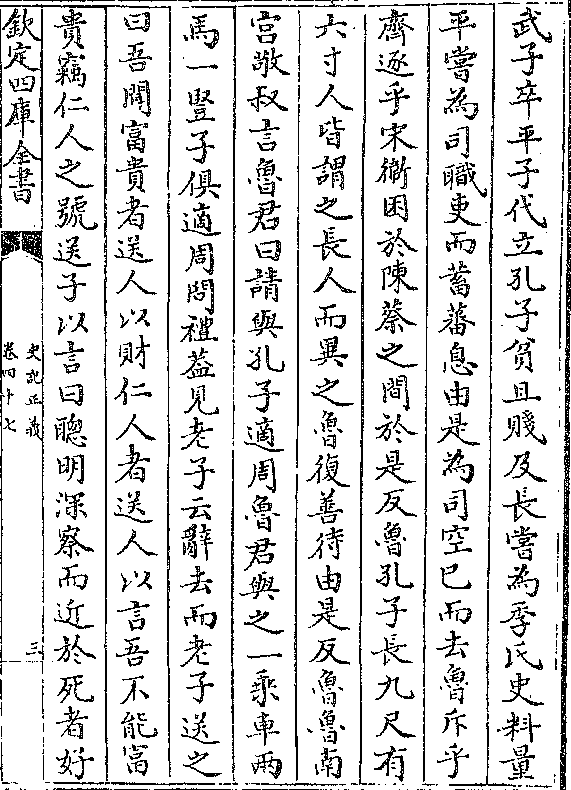 武子卒平子代立孔子貧且賤及長嘗為季氏史料量
平嘗為司職吏而蓄蕃息由是為司空已而去魯斥乎
齊逐乎宋衛困於陳蔡之間於是反魯孔子長九尺有
六寸人皆謂之長人而異之魯復善待由是反魯魯南
宫敬叔言魯君曰請與孔子適周魯君與之一乘車兩
馬一豎子俱適周問禮葢見老子云辭去而老子送之
曰吾聞富貴者送人以財仁人者送人以言吾不能富
貴竊仁人之號送子以言曰聰明深察而近於死者好
欽定四庫全書
史記正義
卷四十七
三